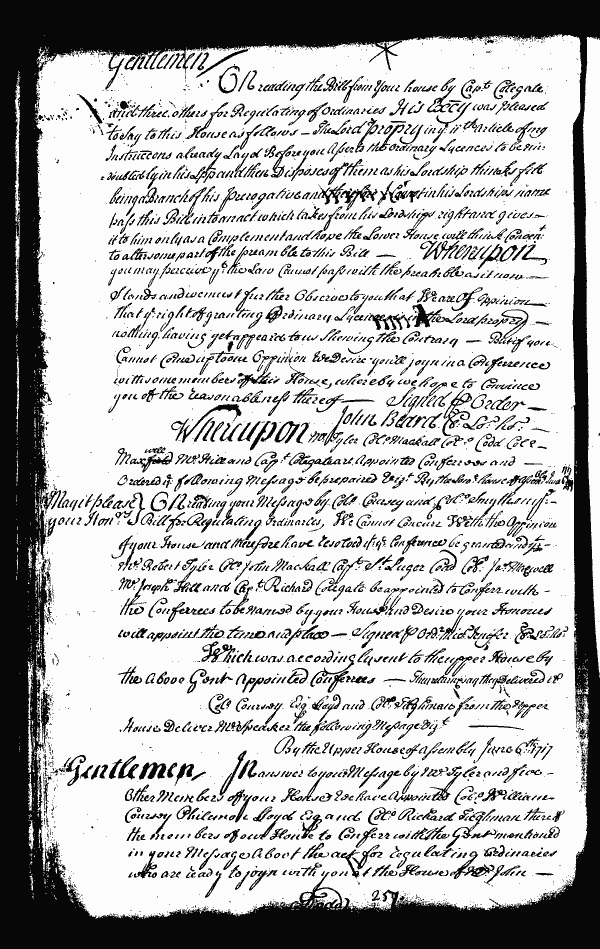 Gentlemen
On reading the Bill from Your house by Capt Colegate
and three others for Regulating of Ordinaries His Excy was pleased
to say to this House as follows — The Lord propry in ye 11th article of my
Instructons already Layd Before you Asserts the Ordinary Lycences to be
in his Lpp and then Disposes of them as his Lordship thinks fitt
being a Branch of his Prerogative and I Cannot in his Lordships name
pass this Bill into an act which takes from his Lordships right and gives
it to him only as a Complement and hope the Lower House will think Convent
to alter some part of the preamble to this Bill — Whereupon
you may perceive yt the Law Cannot pass with the preamble as it now
Stands and we must further Observe to you that We are Of Oppinion
that ye right of granting Ordinary Lycences is in the Lord propry —
nothing having yet appeard to us Showing the Contrary — But if you
Cannot Come up to our Oppinion We Desire you'll joyn in a Conference
with some members of this House, whereby we hope to Convince
you of the reasonableness thereof — Signed P Order —
Whereupon Mr Tyler Coll Mackall Coll Ladd Coll John Beard Cl. Up. Ho.
Maxwell Mr Hill and Capt Colegate are Appointed Conferrees and
Ordered ye following Message be prepared Vizt By the Lowr house of Assembly June
May it please your Honrs On reading your Message by Coll Coursey and Coll Smythe
Bill for Regulating Ordinaries, We Cannot Concur With the Oppinion
of your House and therefore have resolved that ye Conference be granted and that
Mr Robert Tyler Coll John Mackall Capt St Leger Codd Coll Jas Maxwell
Mr Joseph Hill and Capt Richard Colegate be appointed to Conferr with
the Conferrees to be Named by your House And Desire your Honours
will appoint the time and place — Signed P Ordr Mich Jenifer Cl. Lo. Ho.
Which was accordingly sent to the upper House by
the Above Gent Appointed Conferrees — They return & say they Delivered it
Coll Coursey Esq Loyd and Coll Tilghman from the Upper
House Deliver Mr Speaker the following Message Vizt —
By the Upper House of Assembly June 6th 1717
Gentlemen In answer to your Message by Mr Tyler and five
Other Members of your House We have Appointed Coll William
Coursey Philemon Lloyd Esq and Coll Richard Tilghman three of
the members of our House to Conferr with the Gent mentioned
in your Message About the act for regulating Ordinaries
who are ready to joyn with you at the House of Mr John —
257.